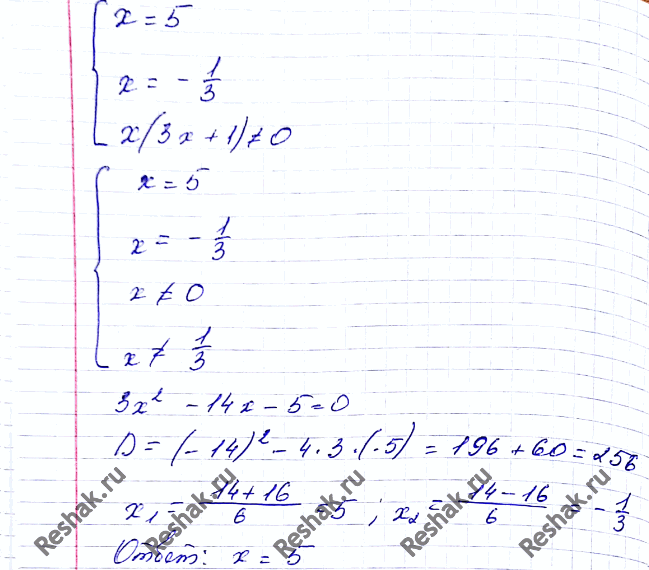 x = 5
x = - 1/3
x(3x + 1) ≠ 0
x = 5
x = - 1/3
x ≠ 0
x ≠ 1/3
3x² - 14x - 5 = 0
D = (-14)² - 4·3·(-5) = 196 + 60 = 256
x₁ = (14 + 16)/6 = 5 ; x₂ = (14 - 16)/6 = - 1/3
Ответ: x = 5
Reshak.ru Reshak.ru Reshak.ru Reshak.ru Reshak.ru